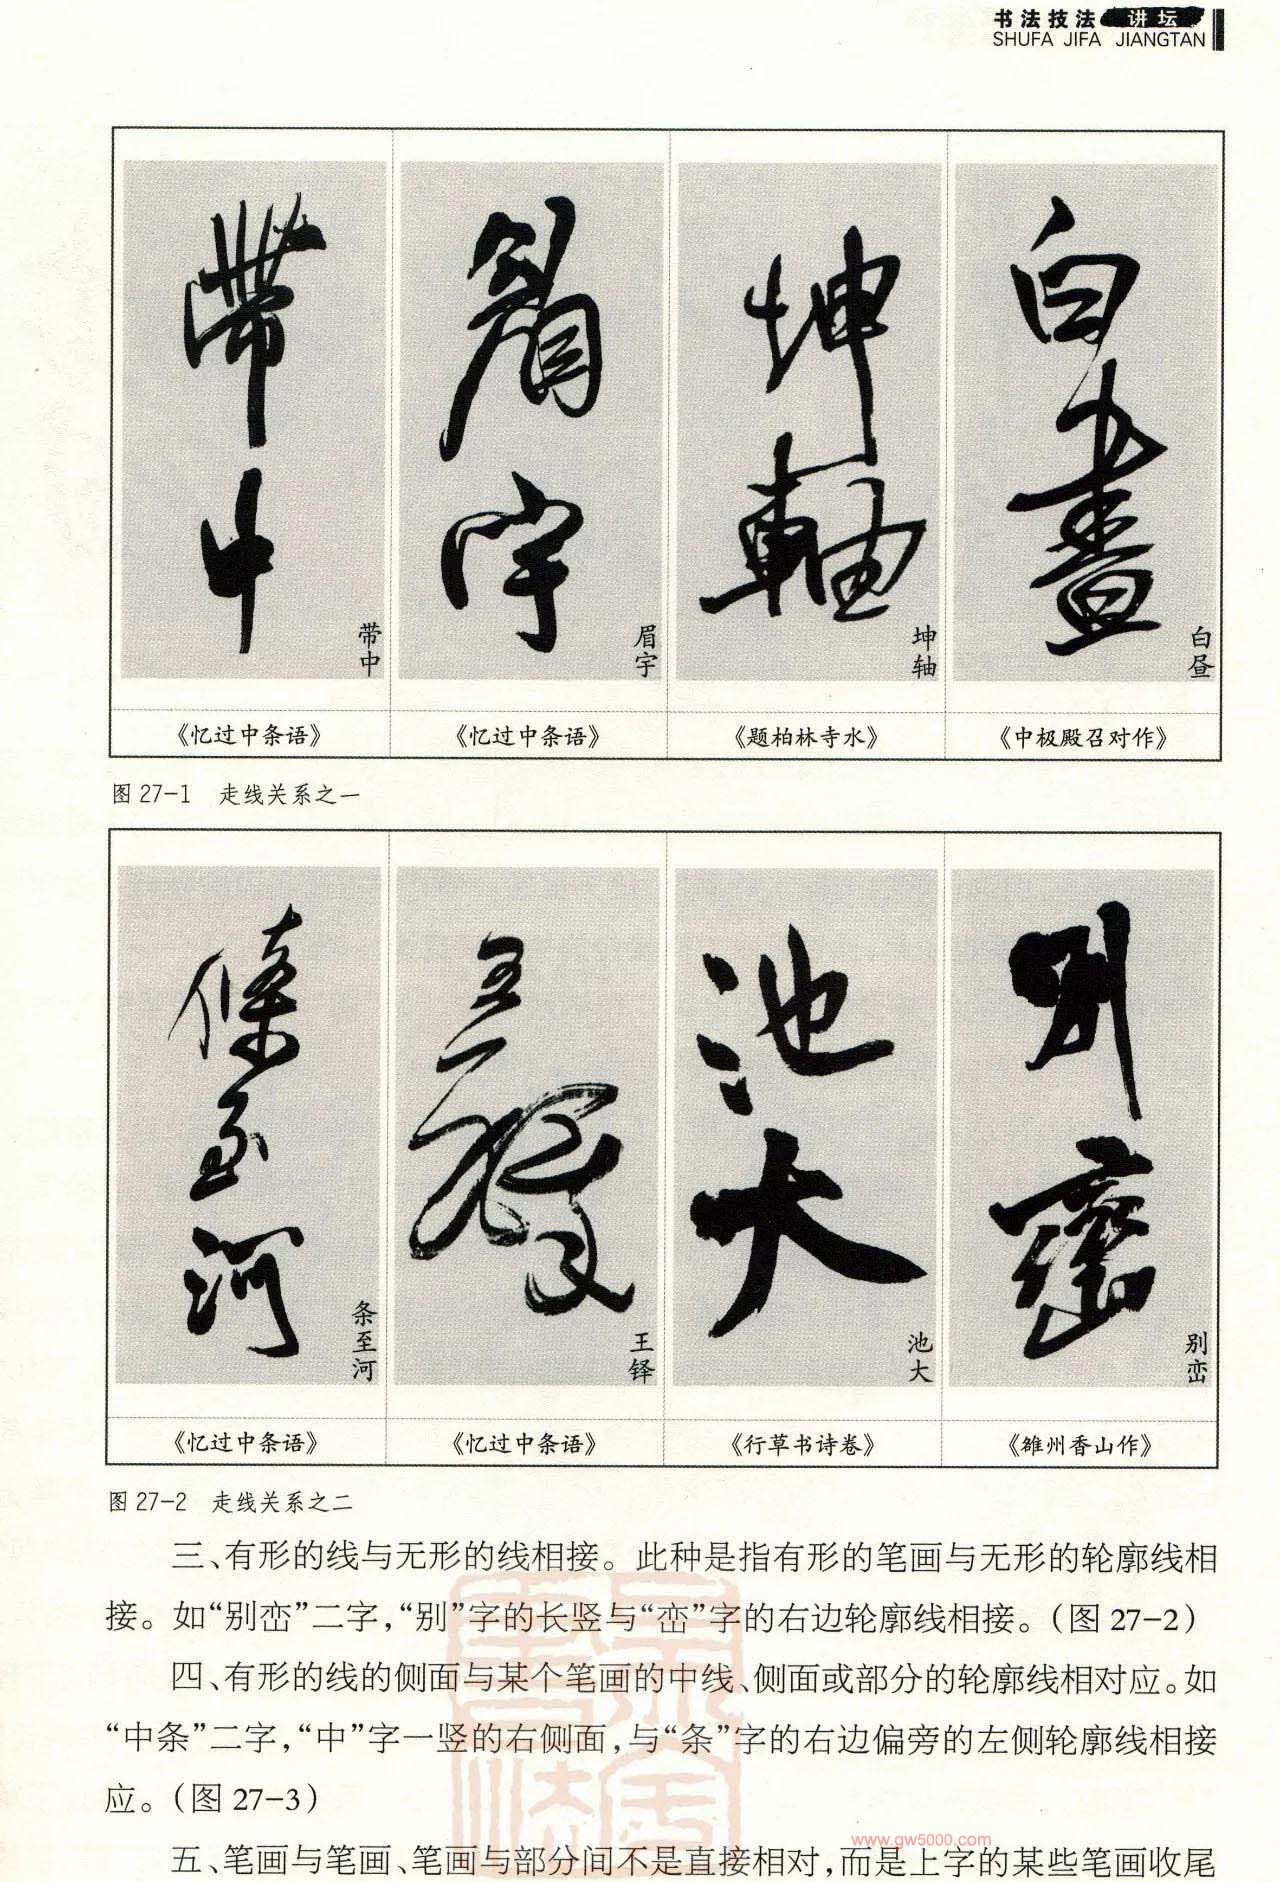 书法技法 讲坛
SHUFA JIFA JIANGTAN
带中
眉宇
坤轴
白昼
《忆过中条语》
《忆过中条语》
《题柏林寺水》
《中极殿召对作》
图 27-1 走线关系之一
条至河
王铎
池大
别峦
《忆过中条语》
《忆过中条语》
《行草书诗卷》
《雒州香山作》
图 27-2 走线关系之二
三、有形的线与无形的线相接。此种是指有形的笔画与无形的轮廓线相
接。如“别峦”二字，“别”字的长竖与“峦”字的右边轮廓线相接。（图 27-2）
四、有形的线的侧面与某个笔画的中线、侧面或部分的轮廓线相对应。如
“中条”二字，“中”字一竖的右侧面，与“条”字的右边偏旁的左侧轮廓线相接
应。（图 27-3）
五、笔画与笔画、笔画与部分间不是直接相对，而是上字的某些笔画收尾
www.gw5000.com